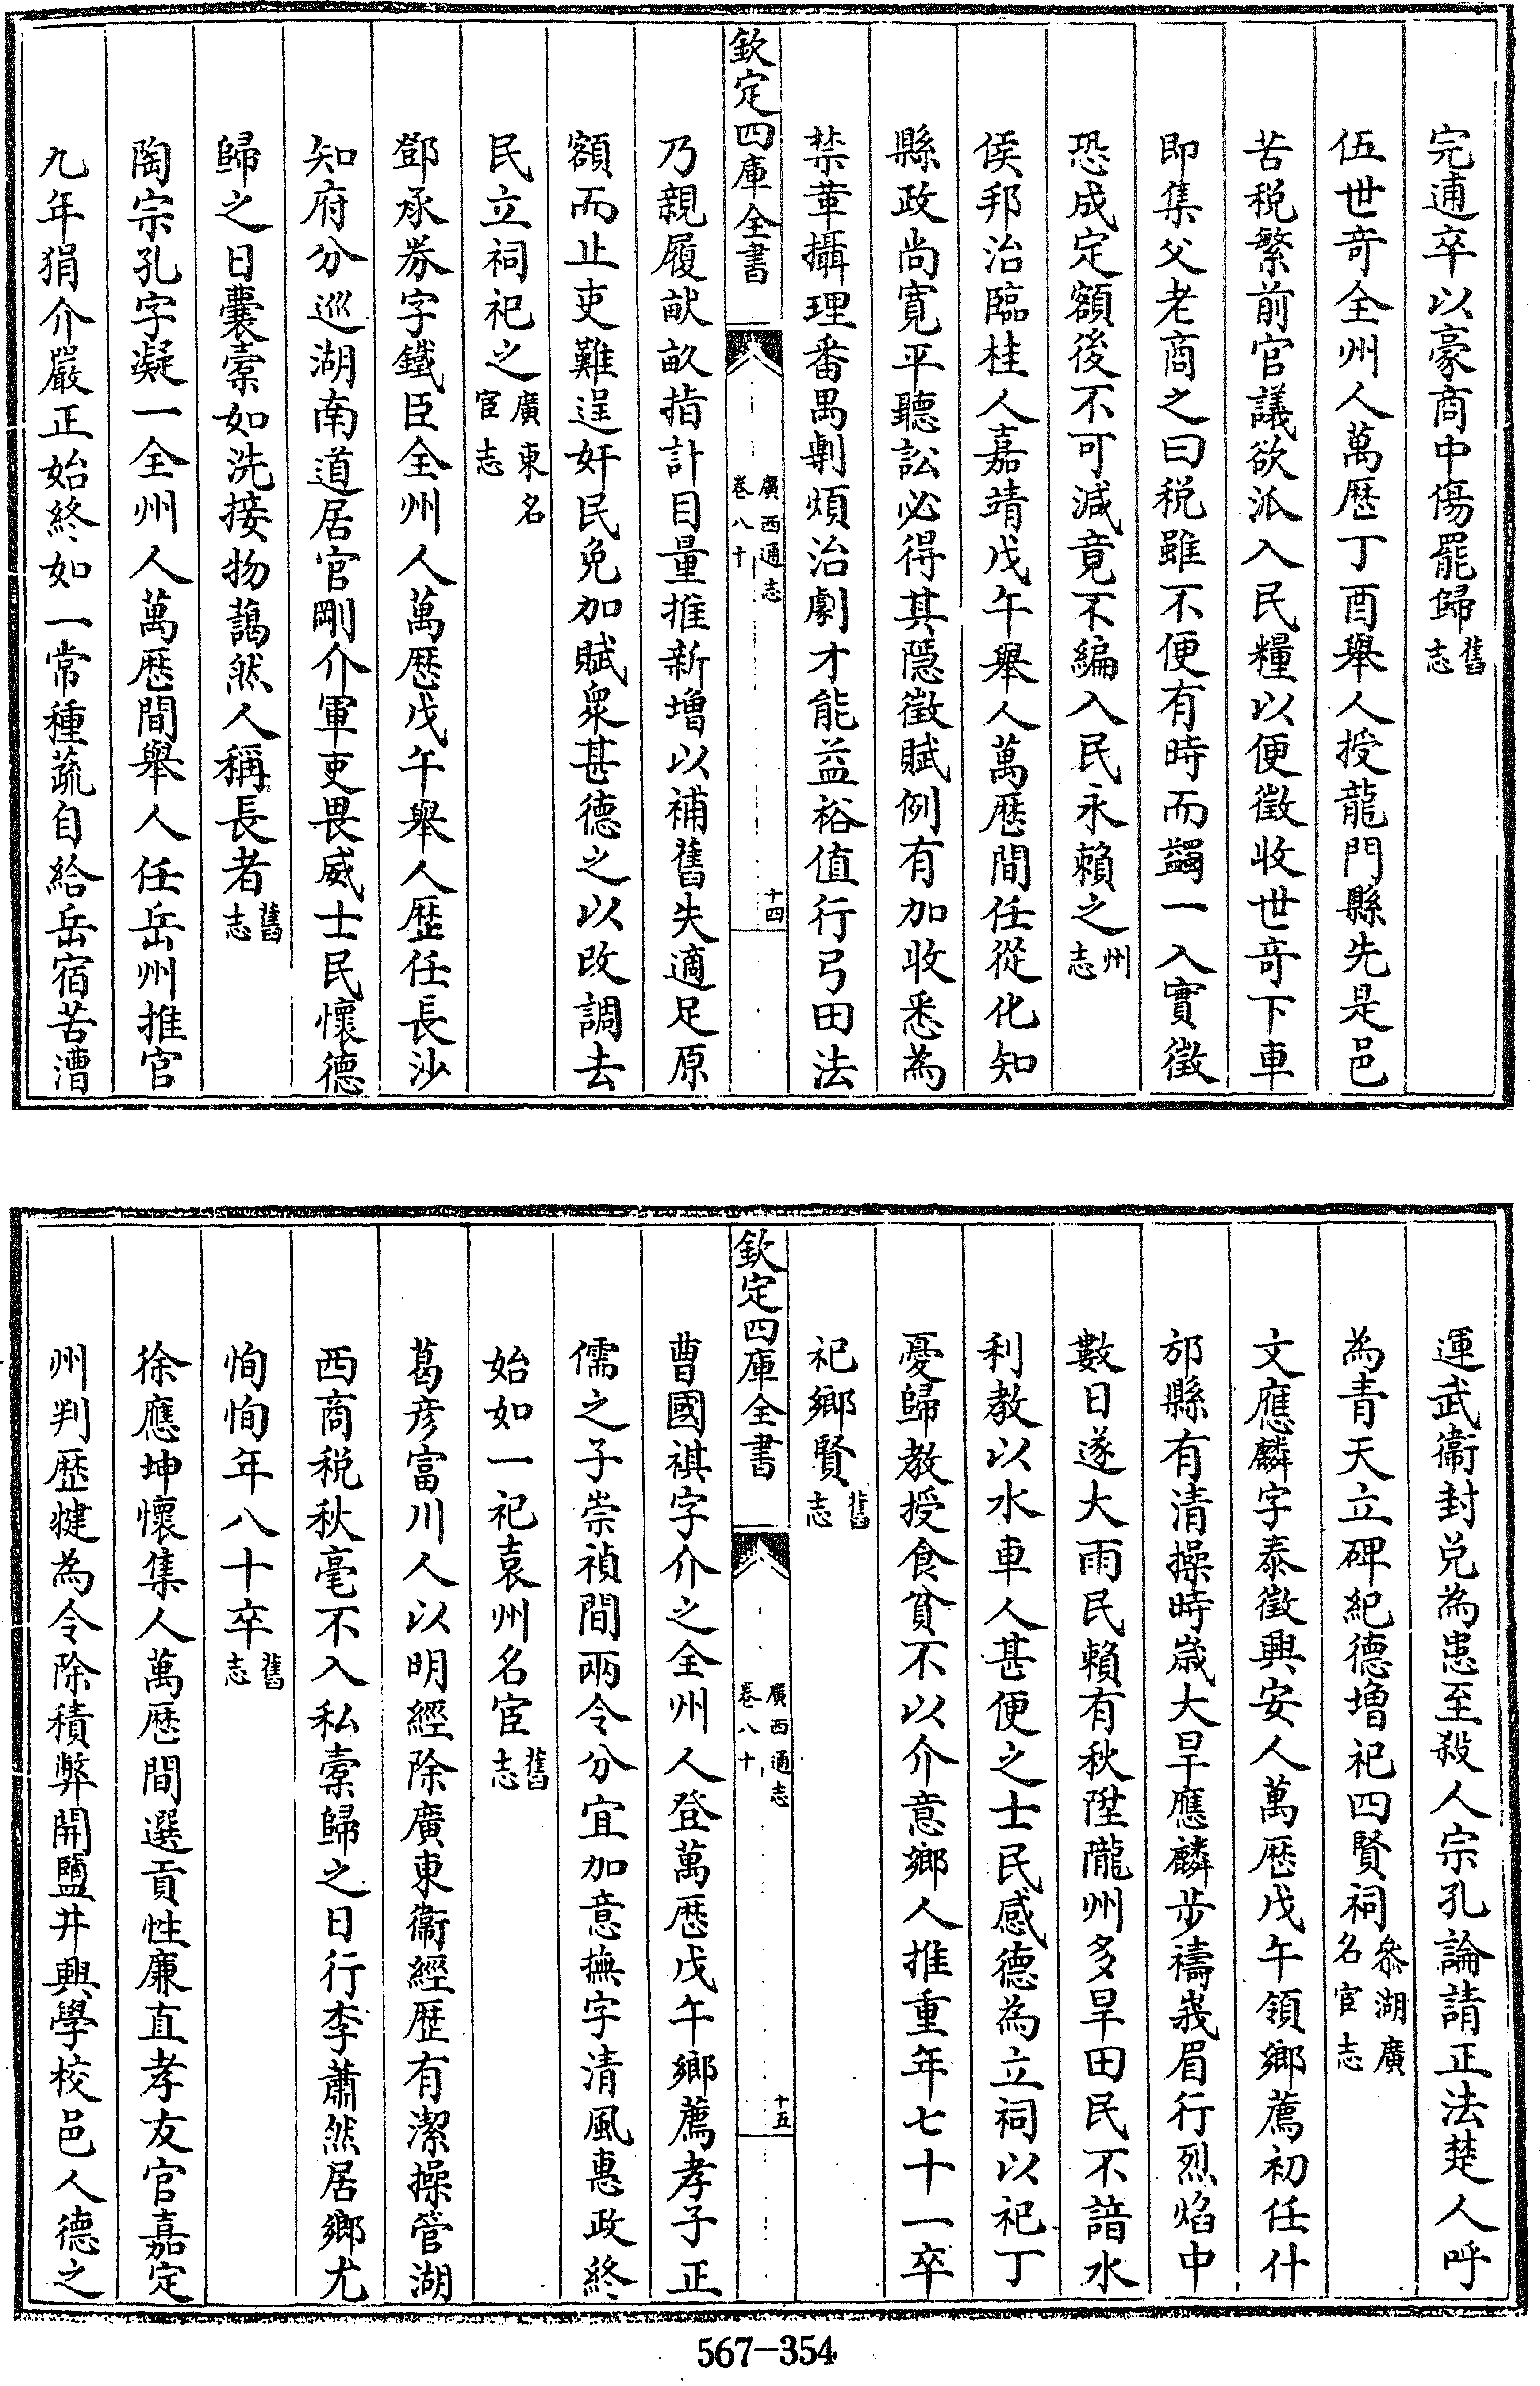 完逋卒以豪商中傷罷歸舊志
伍世奇全州人萬歴丁酉舉人授龍門縣先是邑
苦税繁前官議欲派入民糧以便徵收世奇下車
即集父老商之曰税雖不便有時而蠲一入實徵
恐成定額後不可減竟不編入民永賴之州志
侯邦治臨桂人嘉靖戊午舉人萬歴間任從化知
縣政尚寛平聽訟必得其隠徵賦例有加收悉為
禁革攝理番禺劇煩治劇才能益裕值行弓田法
欽定四庫全書
廣西通志
卷八十
十四
乃親履畝畝指計目量推新增以補舊失適足原
額而止吏難逞奸民免加賦衆甚德之以改調去
民立祠祀之廣東名宦志
鄧承券字鐵臣全州人萬歴戊午舉人歴任長沙
知府分巡湖南道居官剛介軍吏畏威士民懷德
歸之日囊橐如洗接物藹然人稱長者舊志
陶宗孔字凝一全州人萬歴間舉人任岳州推官
九年狷介嚴正始終如一常種蔬自給岳宿苦漕
運武衞封兑為患至殺人宗孔論請正法楚人呼
為青天立碑紀德增祀四賢祠叅湖廣名宦志
文應麟字泰徵興安人萬歴戊午領鄉薦初任什
邡縣有清操時歳大旱應麟步禱峩眉行烈焰中
數日遂大雨民賴有秋陞隴州多旱田民不諳水
利教以水車人甚便之士民感德為立祠以祀丁
憂歸教授食貧不以介意鄉人推重年七十一卒
祀鄉賢舊志
欽定四庫全書
廣西通志
卷八十
十五
曹國祺字介之全州人登萬歴戊午鄉薦孝子正
儒之子崇禎間兩令分宜加意撫字清風惠政終
始如一祀袁州名宦舊志
葛彦富川人以明經除廣東衞經歴有潔操管湖
西商税秋毫不入私橐歸之日行李蕭然居鄉尤
恂恂年八十卒舊志
徐應坤懷集人萬歴間選貢性廉直孝友官嘉定
州判歴犍為令除積弊開鹽井興學校邑人德之
567-354